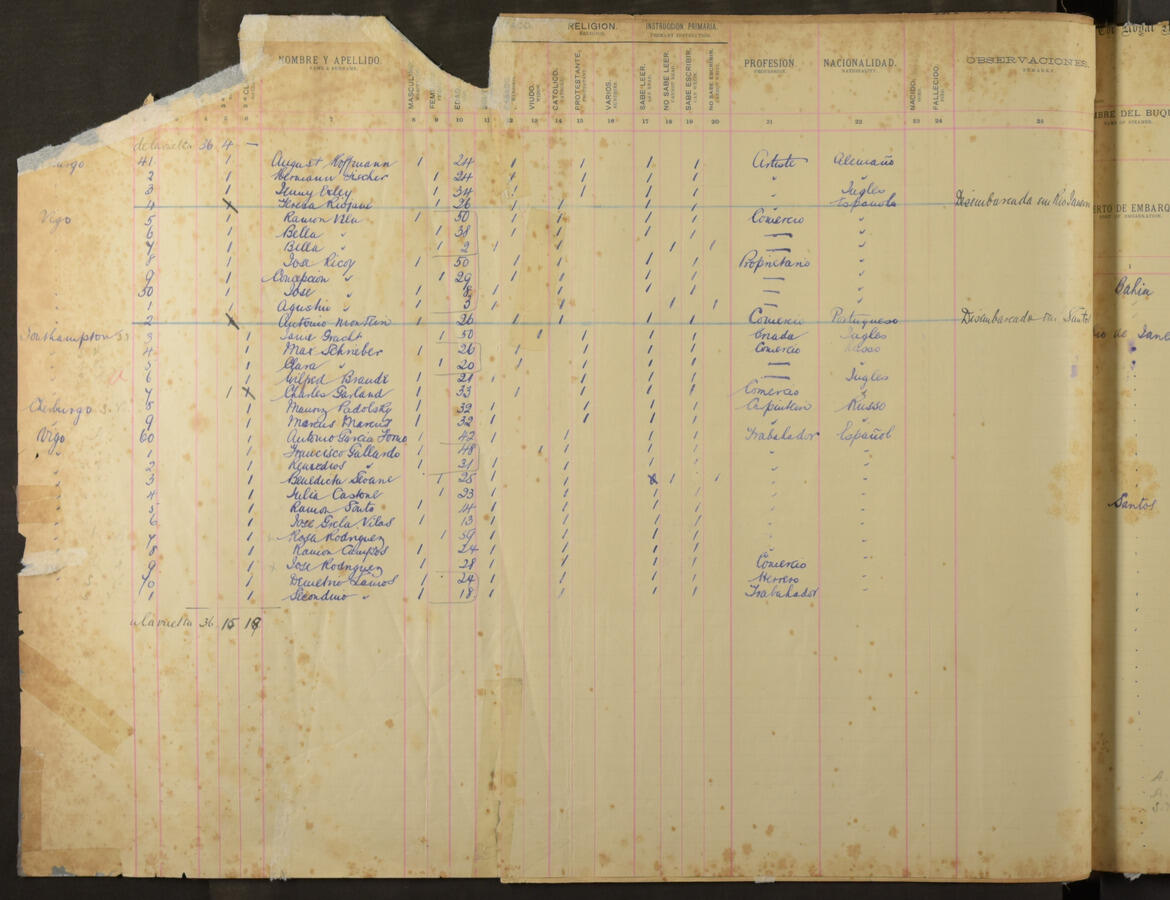 RELIGION. INSTRUCCION PRIMARIA.
RELIGION. PRIMARY INSTRUCTION.
NOMBRE Y APELLIDO. PROFESIÓN. NACIONALIDAD. OBSERVACIONES.
NAME & SURNAME. PROFESSION. NATIONALITY. REMARKS.
VIUDO. CATÓLICO. PROTESTANTE. VARIOS. SABE LEER. NO SABE LEER. SABE ESCRIBIR. NO SABE ESCRIBIR. NACIDO. FALLECIDO.
7 8 9 10 11 12 13 14 15 16 17 18 19 20 21 22 23 24 25
de la vuelta 36 4 —
41 1 August Hoffmann 1 24 1 1 1 1 Artiste Alemaño
2 1 Hermann Fischer 1 24 1 1 1 1 " "
3 1 Jenny 1 34 1 1 1 " Ingles
4 Teresa 1 26 1 1 1 " Española Desembarcada em Rio Janeiro
Vigo 5 1 Ramon 1 50 1 1 1 1 Comercio "
" 6 1 Bella " 1 38 1 1 1 1 — "
" 7 1 Bella " 1 2 1 1 1 1 — "
" 8 1 Jose Ricoy 1 50 1 1 1 1 Proprietario "
" 9 1 Concepcion " 1 29 1 1 1 1 — "
" 50 1 Jose " 1 8 1 1 1 1 — "
" 1 1 Agustin " 1 3 1 1 1 1 — "
" 2 Antonio 1 26 1 1 1 1 Comercio Portugueso Desembarcado em Santos
Southampton 3 1 1 50 1 1 1 Criada Ingles
" 4 1 Max Schneber 1 26 1 1 1 Comercio Russo
" 5 1 Clara " 1 20 1 1 1 — "
" 6 1 Wilfred Brandt 1 21 1 1 1 — Ingles
" 7 1 Charles Garland 1 33 1 1 1 Comercio "
Cherburgo 8 1 Podolsky 1 32 1 1 1 1 Carpintero Russo
" 9 1 Marcus Marcus 1 32 1 1 1 1 " "
Vigo 60 1 Antonio Garcia 1 42 1 1 1 1 Trabahador Español
" 1 1 Francisco Gallardo 1 48 1 1 1 1 " "
" 2 1 Remedios " 1 31 1 1 1 1 " "
" 3 1 Benedicta Seoane 1 25 1 1 1 1 " "
" 4 1 Julia 1 23 1 1 1 1 " "
" 5 1 Ramon Souto 1 14 1 1 1 1 " "
" 6 1 Jose Grela Vilas 1 13 1 1 1 1 " "
" 7 1 Rosa Rodriguez 1 59 1 1 1 1 " "
" 8 1 Ramon Campos 1 24 1 1 1 1 " "
" 9 1 Jose Rodriguez 1 28 1 1 1 1 Comercio "
" 70 1 Demetrio 1 24 1 1 1 1 Herrero "
" 1 1 Secondino " 1 18 1 1 1 1 Trabahador "
a la vuelta 36 15 18
The Royal
BRE DEL BUQ
NAME OF STEAMER.
ERTO DE EMBARQ
PORT OF EMBARKATION.
1
Bahia
Santos